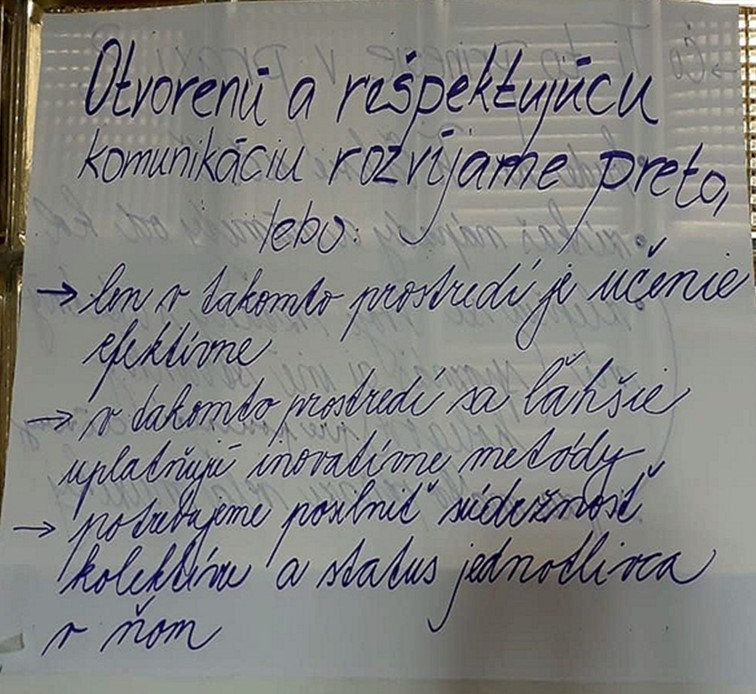 Otvorenú a rešpektujúcu
komunikáciu rozvíjame preto,
lebo:
→ len v takomto prostredí je učenie
efektívne
→ v takomto prostredí sa ľahšie
uplatňujú inovatívne metódy
→ potrebujeme posilniť súdržnosť
kolektívu a status jednotlivca
v ňom